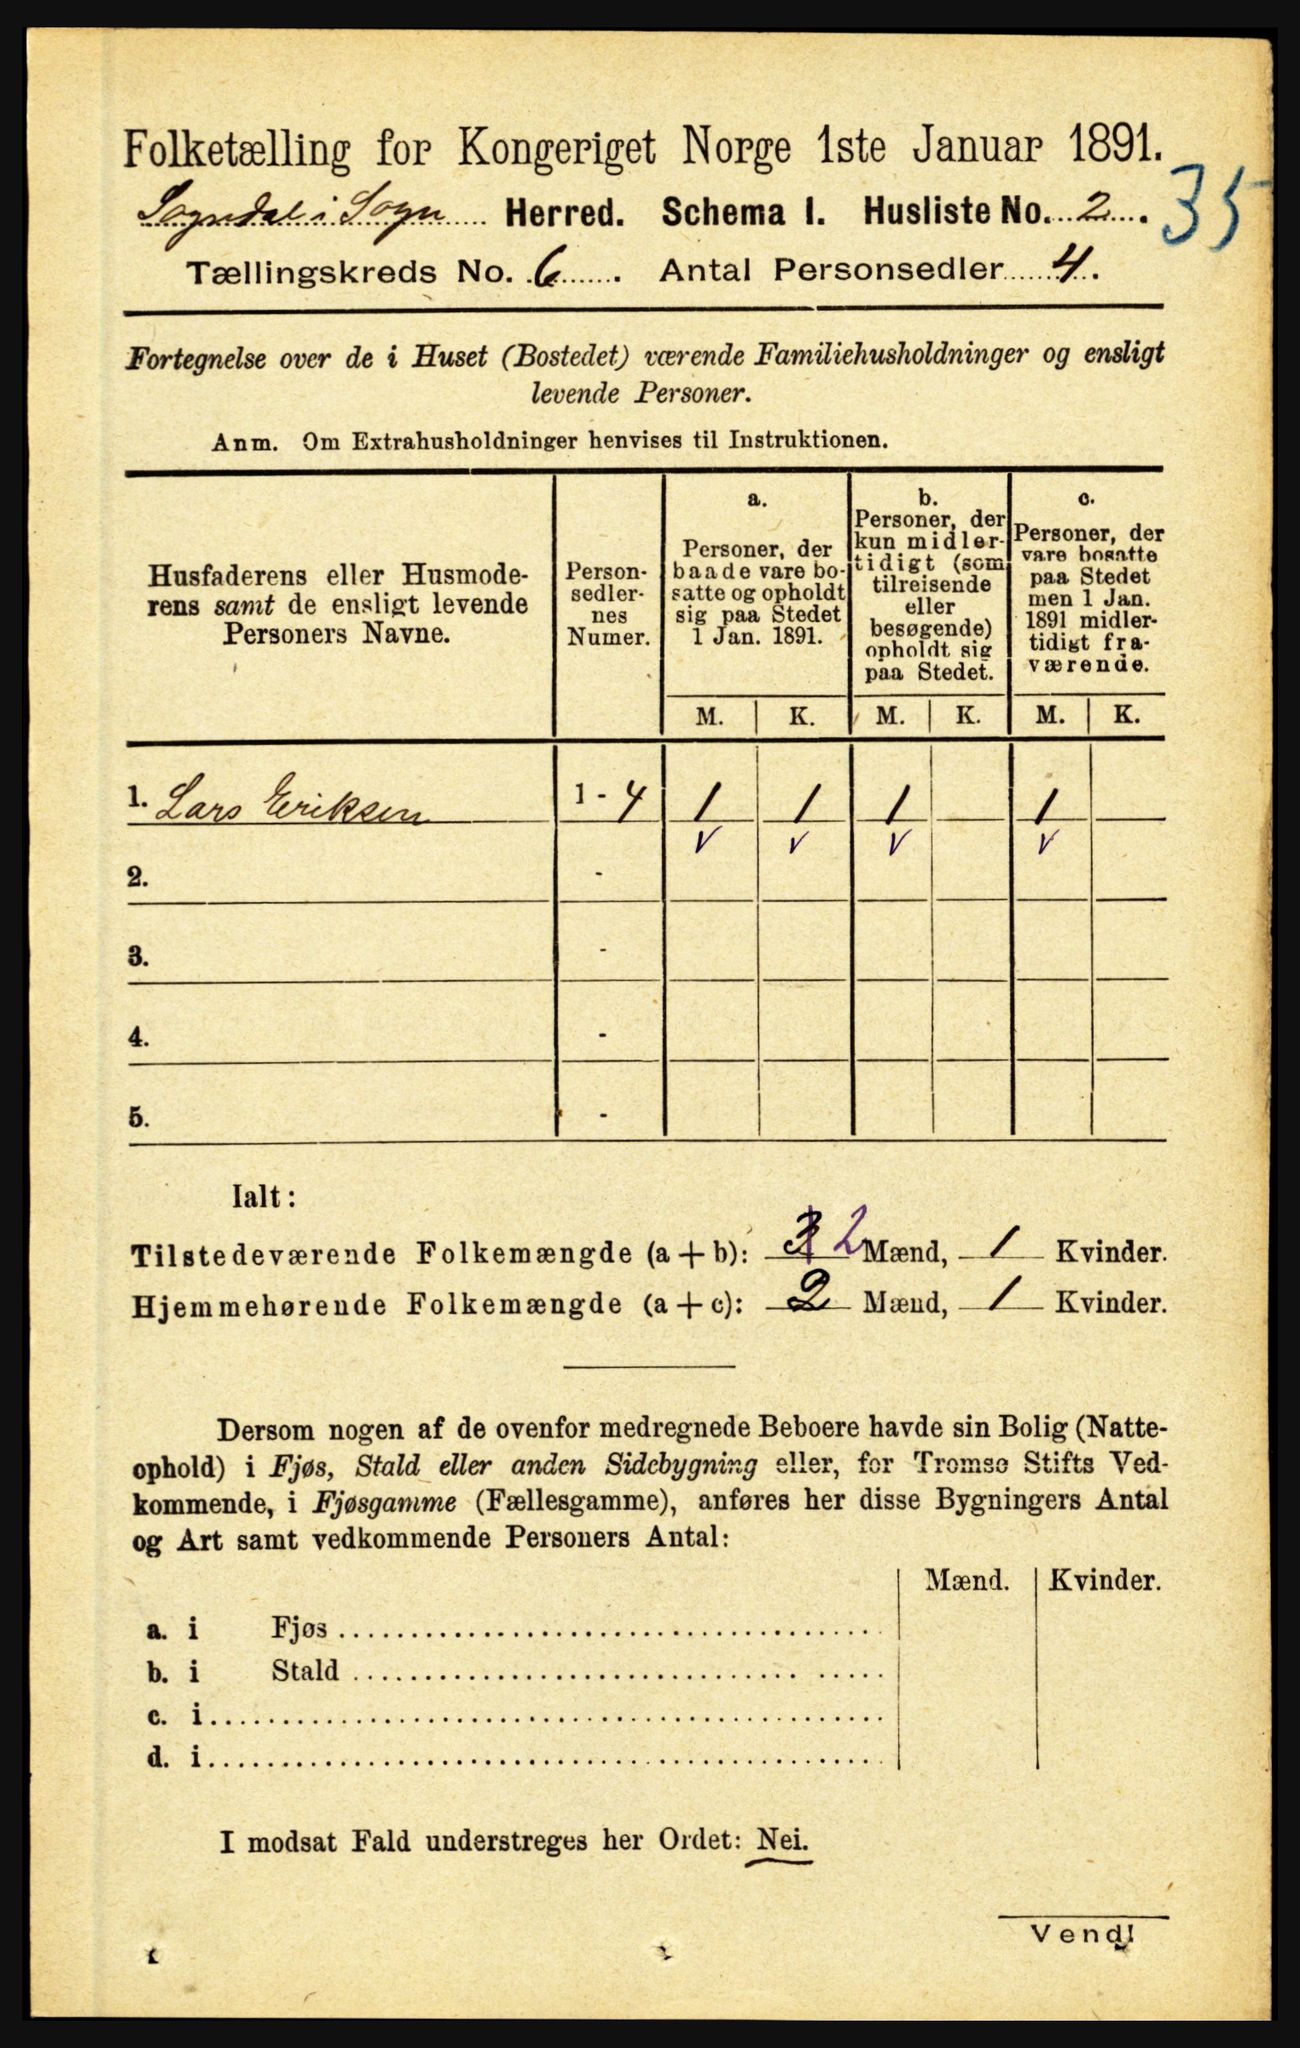 Folketælling for Kongeriget Norge 1ste Januar 1891.
35
Sogndal i Sogn Herred. Schema I. Husliste No. 2.
Tællingskreds No. 6. Antal Personsedler 4.
Fortegnelse over de i Huset (Bostedet) værende Familiehusholdninger og ensligt
levende Personer.
Anm. Om Extrahusholdninger henvises til Instruktionen.
Husfaderens eller Husmode-
rens samt de ensligt levende
Personers Navne.
Person-
sedler-
nes
Numer.
a.
Personer, der
baade vare bo-
satte og opholdt
sig paa Stedet
1 Jan. 1891.
b.
Personer, der
kun midler-
tidigt (som
tilreisende
eller
besøgende)
opholdt sig
paa Stedet.
c.
Personer, der
vare bosatte
paa Stedet
men 1 Jan.
1891 midler-
tidigt fra-
værende.
M. K. M. K. M. K.
1. Lars Eriksen 1 - 4 1 1 1 1
v v v v
2. -
3. -
4. -
5. -
Ialt:
Tilstedeværende Folkemængde (a + b): 2 Mænd, 1 Kvinder.
Hjemmehørende Folkemængde (a + c): 2 Mænd, 1 Kvinder.
Dersom nogen af de ovenfor medregnede Beboere havde sin Bolig (Natte-
ophold) i Fjøs, Stald eller anden Sidebygning eller, for Tromsø Stifts Ved-
kommende, i Fjøsgamme (Fællesgamme), anføres her disse Bygningers Antal
og Art samt vedkommende Personers Antal:
Mænd. Kvinder.
a. i Fjøs
b. i Stald
c. i
d. i
I modsat Fald understreges her Ordet: Nei.
Vend!